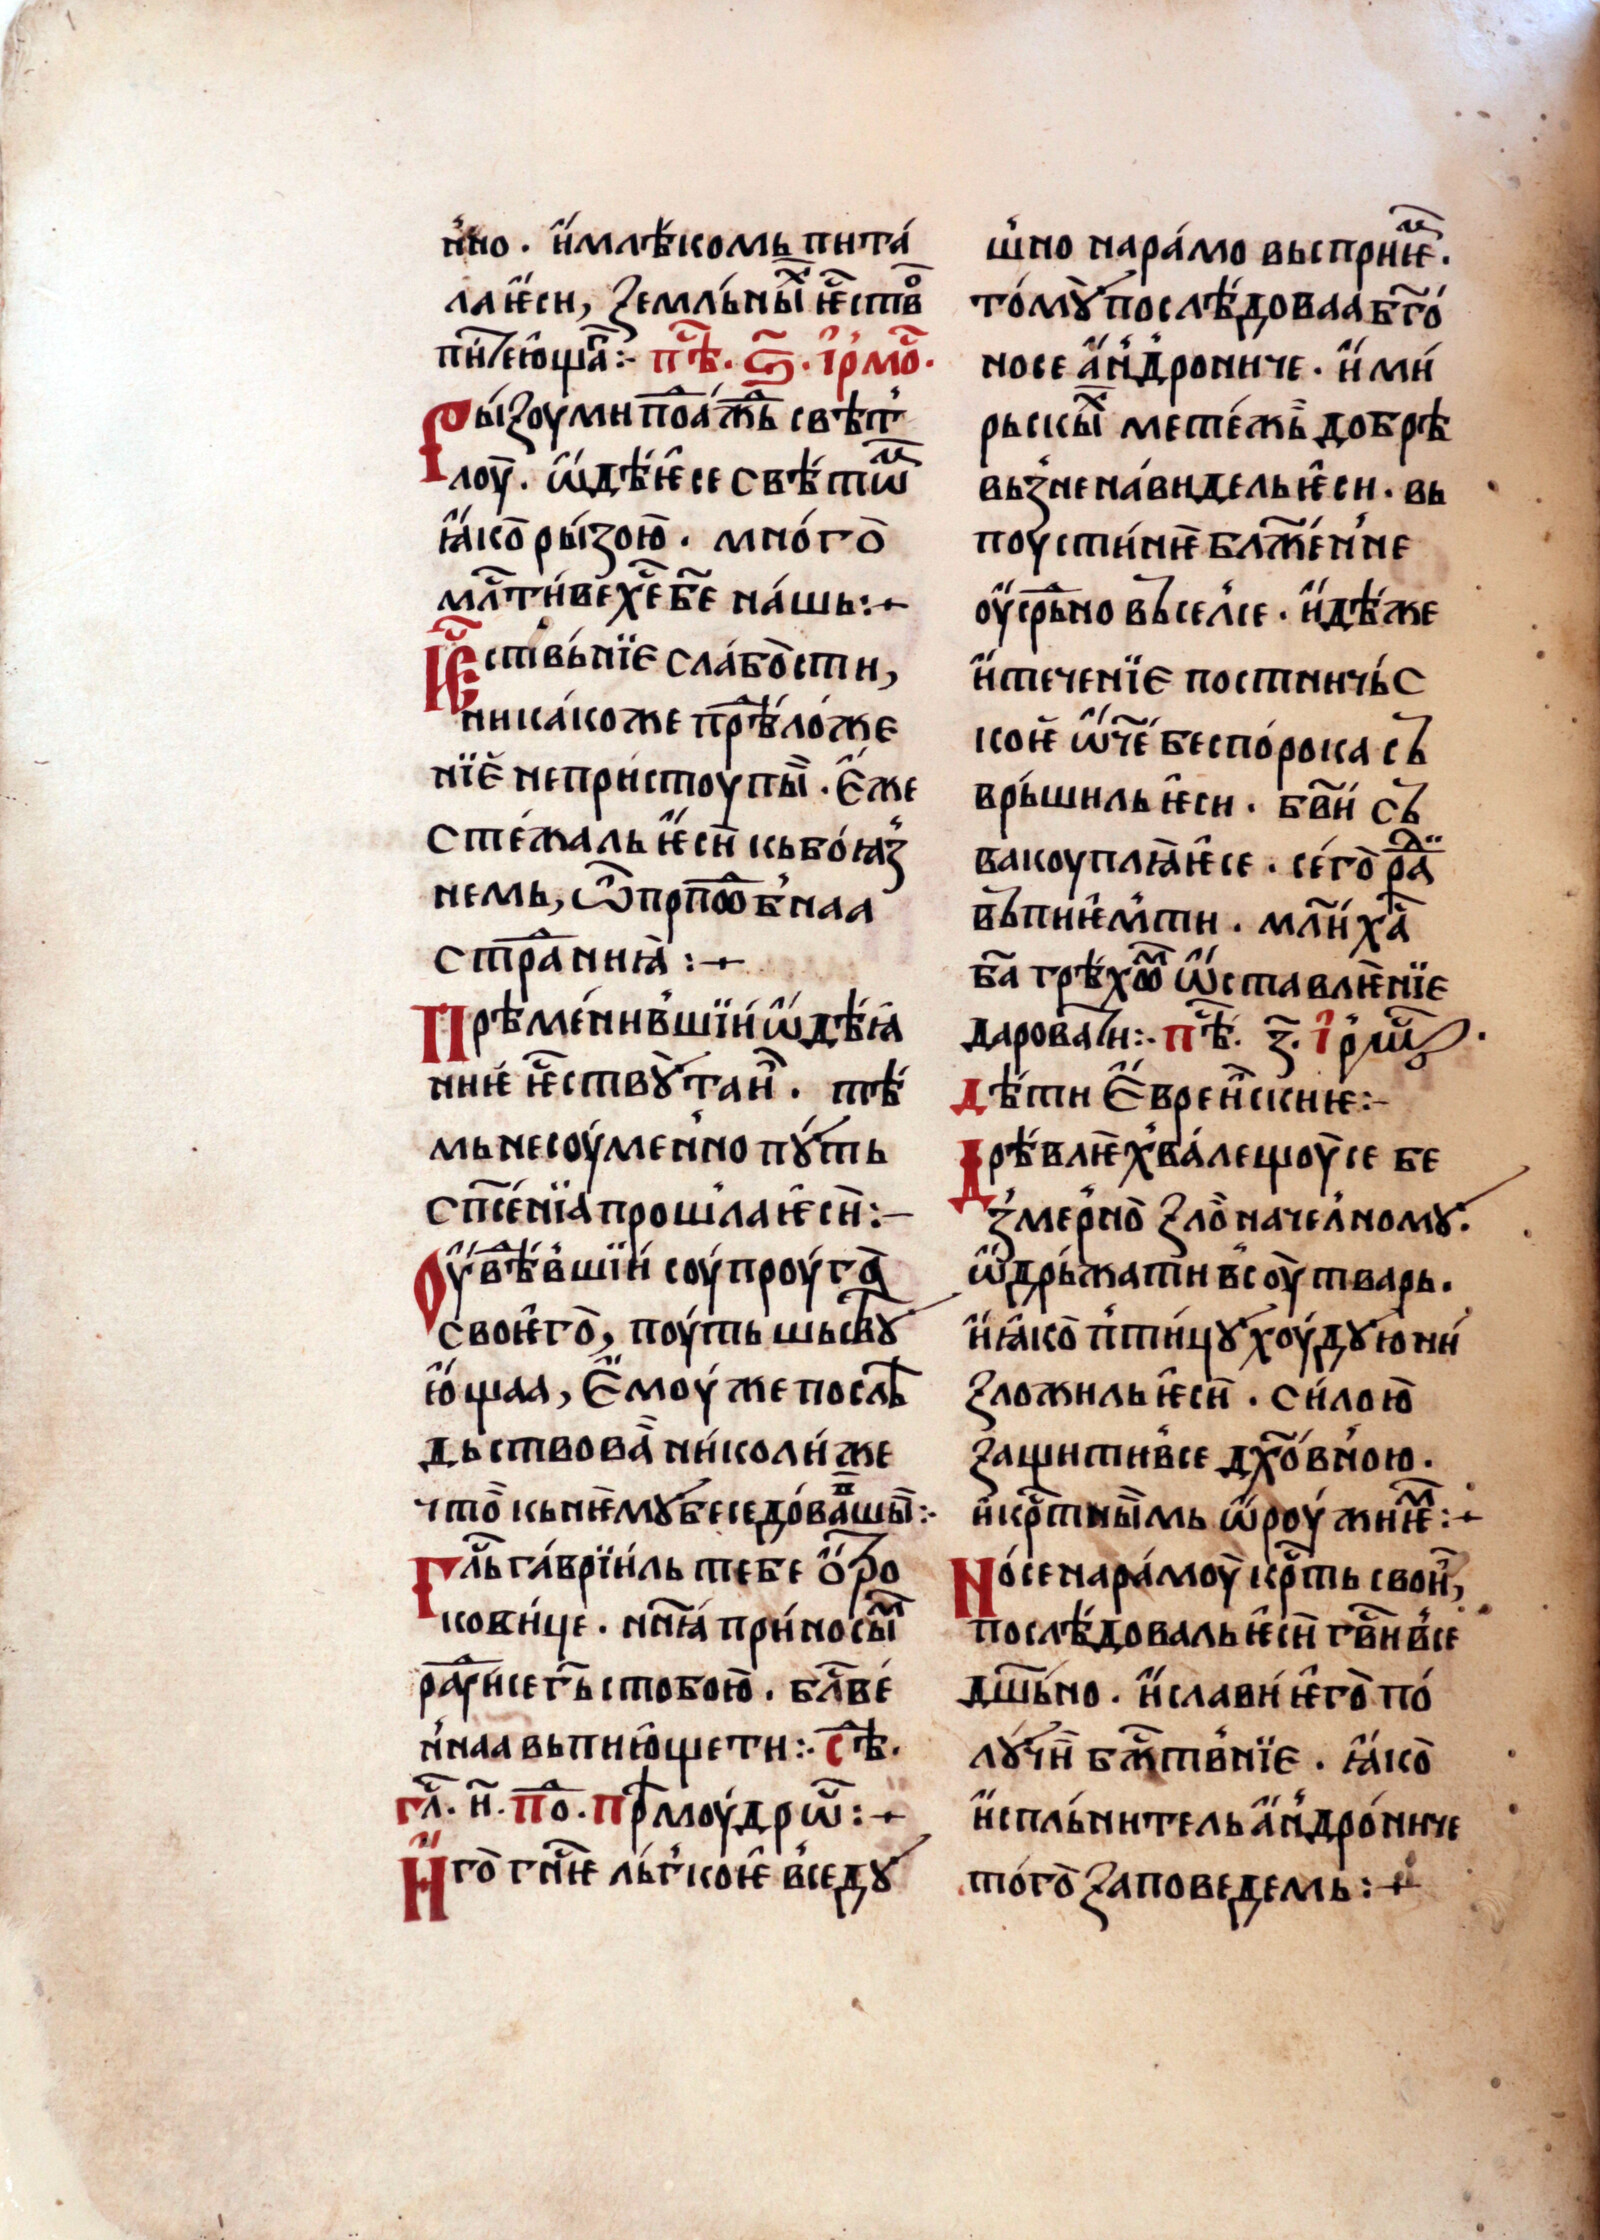 н҆но. и҆ млѣкомь пита́
ла ѥ҆си, земльны́х ѥ҆ств҇о
пит҇ею҆щаг҇: пѣ҇. ѕ҃. і҆рмо҇.
Ры́зоу ми под҇аждь свѣт
лоу. ѡ҆дѣ́ѥ҆ се свѣ́томь
ꙗ҆́ко ры́зою. мно́го
мл҇тиве хе҇ бе҃ на́шь:
Ѥ҇стьвь́нїе сла́бости,
ника́коже прѣло́же
нїе непри́стоупны. е҆́же
стежа́ль ѥ҆сѝ кь бо́ꙗз
немь, ѿ прпо҇дбнаа
странниꙗ:
Прѣме́нившїи ѡ҆дѣ́ꙗ
ниѥ ѥ҆ств҇ꙋ таи. тѣ́
мь несоу́мен҆но пꙋ́ть
сп҇се́нїа прошла ѥ҆сѝ:
Оу҆вѣ́вшїи соупроу́га
своѥ҆го, поу́ть шьс҇вꙋ
ю҆́щаа, е҆моу́же послѣ
дьствова̀ николи́же
что̀ кь нѥмꙋ беседо́вавшы:
Гл҇ь га́врїиль тебе о҆т҇ро
кови́це. нн҃ꙗ прино́сим
рад҇и́се гь҃ с тобою. бл҇ве́
н҆наа вьпию҆ще ти: сѣ҇.
гл҇. и҃. по. Прѣмоу́дрѡ:
И҆го гн҇ѥ ль́гкоѥ҆ вседꙋ
шно на ра́мо вьспри́ѥмь.
то́мꙋ послѣ́доваа бг҃о́
носе а҆́н҆дрониче. и҆ ми́
рьскы́х мете́жь добрѣ
вьзнена́видель ѥ҆си. вь
поусти́нѥ блаже́н҆не
оу҆срьд҇но вьсе́л се. и҆дѣ́же
и҆ тече́нїе постничьс
коѥ ѿче бес по́рока сь
врь́шиль ѥ҆си. бв҃и́ сь
вакоуплꙗ́ѥ҆ се. се́го рад҇и
вьпиѥ҆м ти. мл҇и ха҇
ба҃ грѣ́хом ѡ҆ставлѥ́нїе
дароват҇и: пѣ҇. з҃. і҆рмѡ҇з.
Дѣти е҆вре́искиѥ:
Дрѣ́влѥ хва́лещоу се бе
змерно зло̀ начелномꙋ.
ѡ҆дрь́жати в҆соу тварь.
и҆ꙗ҆ко п҆ти́цꙋ хоу́дꙋю ни́
зложиль ѥ҆сѝ. си́лою
защитив се дх҃о́вною.
и҆ кр҇тны́мь ѡ҆роу́жиѥм:
Носе на ра́моу кр҇ть свои,
послѣ́доваль ѥ҆сѝ гв҇и все
дш҃ь́но. и҆ сла́ви ѥ҆го по
лꙋ́чѝ бж҇твнїе. ꙗ҆́ко
и҆спль́нитель а҆́н҆дро́ниче
то́го заповедемь: